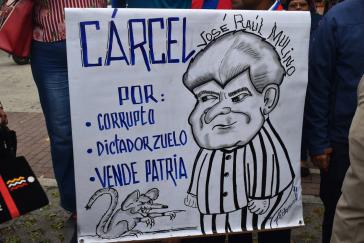 CÁRCEL
JOSÉ RAÚL MULINO
POR:
• CORRUPTO
• DICTADORZUELO
• VENDE PATRIA